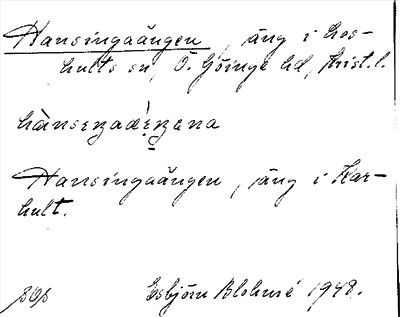 Hansingaängen, äng i Los-
hults sn, Ö. Göinge hd, Krist. l.
hànseŋadè̤ŋena
Hansingaängen, äng i Kar-
hult.
Esbjörn Blohmé 1948.